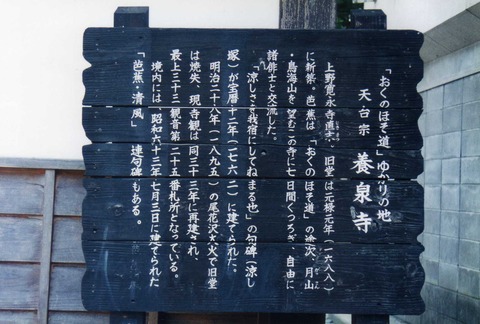 「おくのほそ道」ゆかりの地
天台宗 養泉寺
上野寛永寺直末、旧堂は元禄元年(一六八八)
に新築。芭蕉は「おくのほそ道」の途次、月山
・鳥海山を望むこの寺に七日間くつろぎ、自由に
諸俳士と交流した。
「涼しさを我宿にしてねまる也」の句碑(涼し
塚)が宝暦十二年(一七六二)に建てられた。
明治二十八年(一八九五)の尾花沢大火で旧堂
は焼失、現寺観は同三十三年に再建され、
最上三十三観音第二十五番札所となっている。
境内には「昭和六十三年七月三日に建てられた
「芭蕉・清風」連句碑もある。